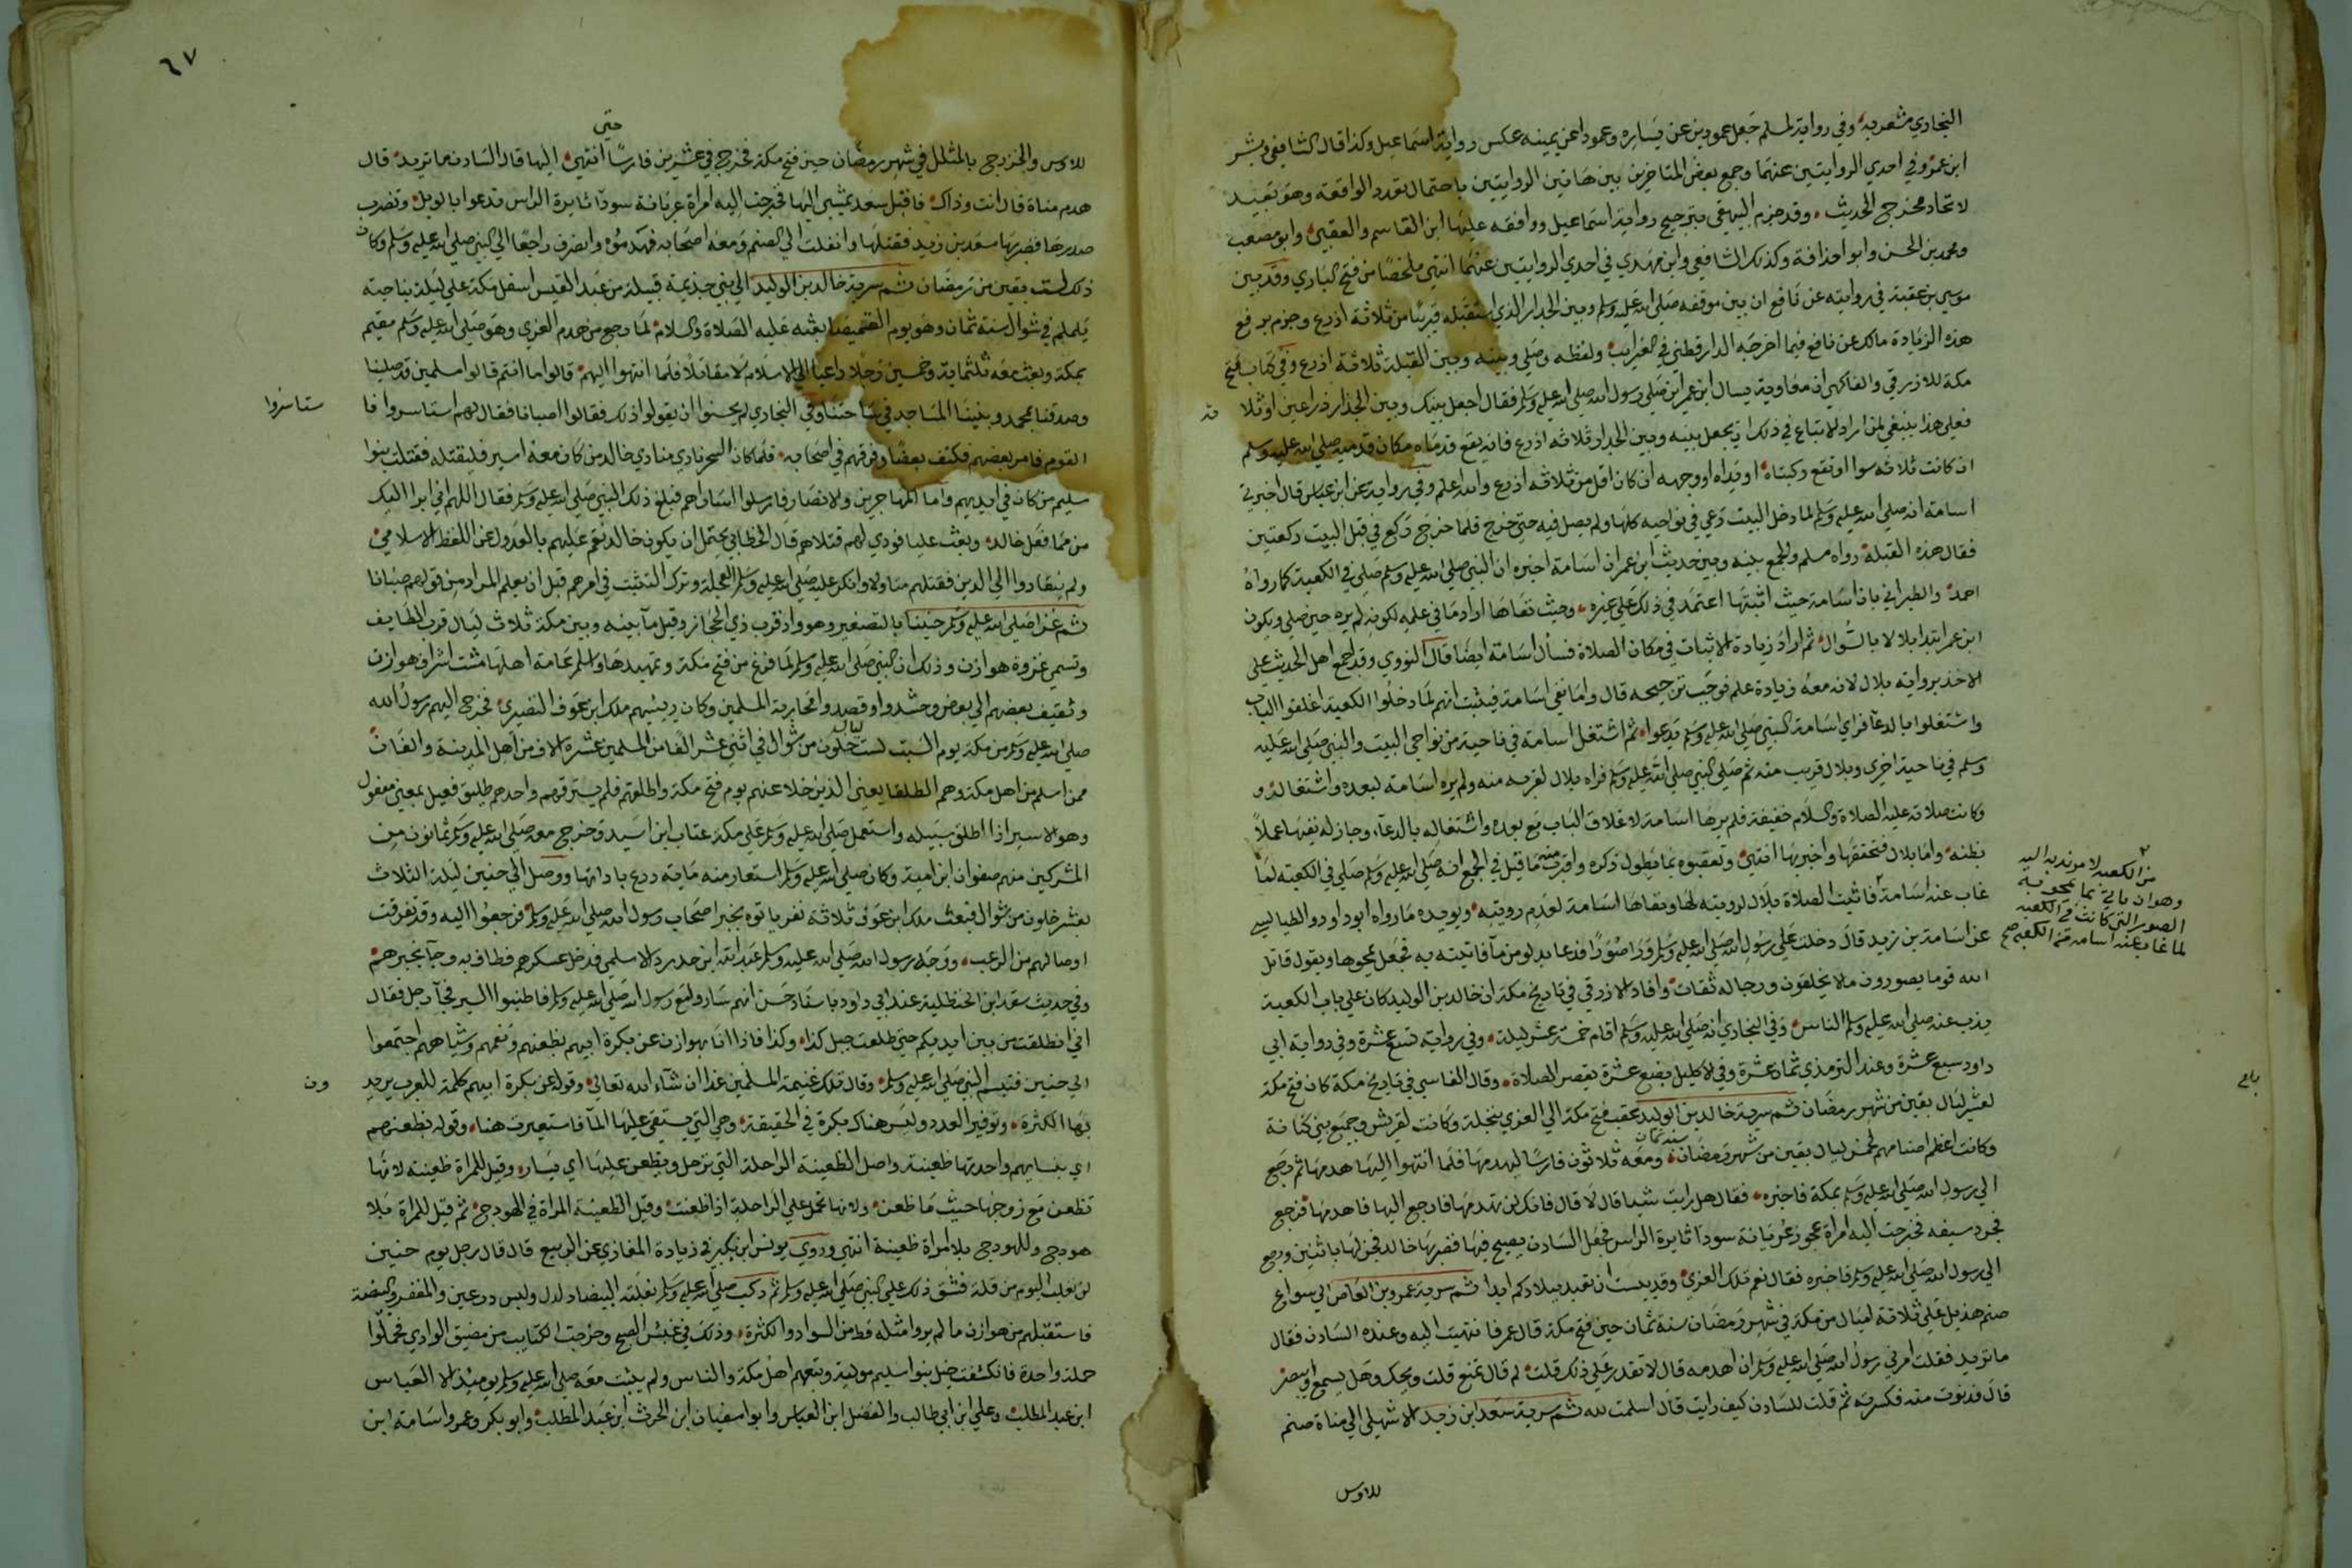 البخاري مشعر به وفي رواية لمسلم جعل عمودين عن يساره وعمودا عن يمينه عكس رواية اسماعيل وكذا قال الشافعي وبشر
ابن عمر وفي احدي الروايتين عنهما وجمع بعض المتاخرين بين هاتين الروايتين باحتمال تعدد الواقعة وهو بعيد
لاتحاد مخرج الحديث وقد جزم البيهقي بترجيح رواية اسماعيل ووافقه عليها ابن القاسم والقعنبي وابو مصعب
ومحمد بن الحسن وابو احذافة وكذلك الشافعي وابن مهدي في احدي الروايتين عنهما انتهي ملخصا من فتح الباري وقد بين
موسي بن عقبة في روايته عن نافع ان بين موقفه صلي الله عليه وسلم وبين الجدار الذي استقبله قريبا من ثلاثة اذرع وجزم برفع
هذه الزيادة مالك عن نافع فيما اخرجه الدارقطني في الغرايب ولفظه وصلي وبينه وبين القبلة ثلاثة اذرع وفي كتاب فتح
مكة للازرقي والفاكهي ان معاوية سال ابن عمر اين صلي رسول الله صلي الله عليه وسلم فقال اجعل بينك وبين الجدار ذراعين او ثلا
فعلي هذا ينبغي لمن اراد الاتباع في ذلك ان يجعل بينه وبين الجدار ثلاثة اذرع فانه يقع قدماه مكان قدميه صلي الله عليه وسلم
ان كانت ثلاثه سوا او تقع ركبتاه او يداه او وجهه ان كان اقل من ثلاثه اذرع والله اعلم وفي رواية عن ابن عباس قال اخبرني
اسامة انه صلي الله عليه وسلم لما دخل البيت دعي في نواحيه كلها ولم يصل فيه حتي خرج فلما خرج ركع في قبل البيت ركعتين
فقال هذه القبلة رواه مسلم والجمع بينه وبين حديث ابن عمر ان اسامة اخبره ان النبي صلي الله عليه وسلم صلي في الكعبة كما رواه
احمد والطبراني بان اسامة حيث اثبتها اعتمد في ذلك علي غيره وحيث نفاها اراد ما في علمه لكونه لم يره حين صلي ويكون
ابن عمر ابتدا بلالا بالسوال ثم اراد زيادة الاثبات في مكان الصلاة فسأل اسامة ايضا قال النووي وقد اجمع اهل الحديث علي
الاخذ برواية بلال لانه معه زيادة علم فوجب ترجيحه قال واما نفي اسامة فيثبت انهم لما دخلوا الكعبة اغلقوا الباب
واشتغلوا بالدعا فراي اسامة النبي صلي الله عليه وسلم يدعوا ثم اشتغل اسامة في ناحية من نواحي البيت والنبي صلي الله عليه
وسلم في ناحية اخري وبلال قريب منه ثم صلي النبي صلي الله عليه وسلم فراه بلال لقربه منه ولم يره اسامة لبعده واشتغاله و
وكانت صلاته عليه الصلاة والسلام خفيفة فلم يرها اسامة لاغلاق الباب مع بعده واشتغاله بالدعاء وجاز له نفيها عملا
بظنه واما بلال فتحققها واخبر بها انتهي وتعقبوه بما يطول ذكره واقرب منه ما قيل في الجمع انه صلي الله عليه وسلم صلي في الكعبة لما
غاب عنه اسامة فاثبت الصلاة بلال لرويته لها ونفاها اسامة لعدم رويته ويويده ما رواه ابو داود الطيالسي
من الكعبه لامر ندبه اليه
وهو ان ياتي بما يمحو به
الصور التي كانت في الكعبه
لما غاب عنه اسامه من الكعبه صح
عن اسامة بن زيد قال دخلت علي رسول الله صلي الله عليه وسلم فراي صورا فدعا بدلو من ما فاتيته به فجعل يمحوها ويقول قاتل
الله قوما يصورون ما لا يخلقون ورجاله ثقات وافاد الازرقي في تاريخ مكة ان خالد بن الوليد كان علي باب الكعبة
يذب عنه صلي الله عليه وسلم الناس وفي البخاري انه صلي الله عليه وسلم اقام خمسة عشر ليلة وفي رواية تسع عشرة وفي رواية ابي
داود سبع عشرة وعند الترمذي ثمان عشرة وفي الاكليل بضع عشرة يقصر الصلاة وقال الفاسي في تاريخ مكة كان فتح مكة
لعشر ليال بقين من شهر رمضان ثم سرية خالد بن الوليد عقب فتح مكة الي العزي بنخلة وكانت لقريش وجميع بني كنانة
وكانت اعظم اصنامهم لخمس ليال بقين من شهر رمضان سنة ثمان ومعه ثلاثون فارسا ليهدمها فلما انتهوا اليها هدمها ثم رجع
الي رسول الله صلي الله عليه وسلم بمكة فاخبره فقال هل رايت شيئا قال لا قال فانك لن تهدمها فارجع اليها فاهدمها فرجع
فجرد سيفه فخرجت اليه امراة عجوز عريانة سودا ثايرة الراس فجعل السادن يصيح فيها فضربها خالد فجزلها باثنين ورجع
الي رسول الله صلي الله عليه وسلم فاخبره فقال نعم تلك العزي وقد يئست ان تعبد ببلادكم ابدا ثم سرية عمرو بن العاص الي سواع
صنم هذيل علي ثلاثة اميال من مكة في شهر رمضان سنة ثمان حين فتح مكة قال عمر فانتهيت اليه وعنده السادن فقال
ما تريد فقلت امرني رسول الله صلي الله عليه وسلم ان اهدمه قال لا تقدر علي ذلك قلت لم قال تمنع قلت ويحك وهل يسمع او يبصر
قال فدنوت منه فكسرته ثم قلت للسادن كيف رايت قال اسلمت لله ثم سرية سعد ابن زيد الاشهلي الي مناة صنم
للاوس
٦٧
للاوس والخزرج بالمشلل في شهر رمضان حين فتح مكة فخرج في عشرين فارسا حتي انتهي اليها قال السادن ما تريد قال
هدم مناة قال انت وذاك فاقبل سعد يمشي اليها فخرجت اليه امراة عريانة سودا ثايرة الراس تدعوا بالويل وتضرب
صدرها فضربها سعد بن زيد فقتلها واقبلت الي الصنم ومعه اصحابه فهدموه وانصرف راجعا الي النبي صلي الله عليه وسلم وكان
ذلك لست بقين من رمضان ثم سرية خالد بن الوليد الي بني جذيمة قبيلة من عبد القيس اسفل مكة علي ليلة بناحية
يلملم في شوال سنة ثمان وهو يوم الغميصا بعثه عليه الصلاة والسلام لما رجع من هدم العزي وهو صلي الله عليه وسلم مقيم
بمكة وبعث معه ثلثماية وخمسين رجلا داعيا الي الاسلام لا مقاتلا فلما انتهوا اليهم قالوا ما انتم قالوا مسلمين قد صلينا
وصدقنا بمحمد وبنينا المساجد في ساحتنا وفي البخاري لم يحسنوا ان يقولوا ذلك فقالوا صبانا فقال لهم استاسروا فا
ستاسروا
القوم فامر بعضهم فكتف بعضا وفرقهم في اصحابه فلما كان السحر نادي منادي خالد من كان معه اسير فليقتله فقتلت بنوا
سليم من كان في ايديهم واما المهاجرين والانصار فارسلوا اساراهم فبلغ ذلك النبي صلي الله عليه وسلم فقال اللهم اني ابرا اليك
من مما فعل خالد وبعث عليا فودي لهم قتلاهم قال الخطابي يحتمل ان يكون خالد نقم عليهم بالعدول عن اللفظ الاسلامي
ولم ينقادوا الي الدين فقتلهم متاولا وانكر عليه صلي الله عليه وسلم العجلة وترك التثبت في امرهم قبل ان يعلم المراد من قولهم صبانا
ثم غزا صلي الله عليه وسلم حنينا بالتصغير وهو واد قرب ذي المجاز وقيل ما بينه وبين مكة ثلاث ليال قرب الطايف
وتسمي غزوة هوازن وذلك ان النبي صلي الله عليه وسلم لما فرغ من فتح مكة وتمهيدها واسلم عامة اهلها مشت اشراف هوازن
وثقيف بعضهم الي بعض وحشدوا وقصدوا محاربة المسلمين وكان رييسهم ملك ابن عوف النضيري فخرج اليهم رسول الله
صلي الله عليه وسلم من مكة يوم السبت لست ليال خلون من شوال في اثني عشر الفا من المسلمين عشرة الاف من اهل المدينة والفان
ممن اسلم من اهل مكة وهم الطلقا يعني الذين خلا عنهم يوم فتح مكة واطلقهم فلم يسترقهم واحدهم طليق فعيل بمعني مفعول
وهو الاسير اذا اطلق سبيله واستعمل صلي الله عليه وسلم علي مكة عتاب ابن اسيد وخرج معه صلي الله عليه وسلم ثمانون من
المشركين منهم صفوان ابن امية وكان صلي الله عليه وسلم استعار منه ماية درع باداتها ووصل الي حنين ليلة الثلاث
لعشر خلون من شوال فبعث ملك ابن عوف ثلاثة نفر ياتوه بخبر اصحاب رسول الله صلي الله عليه وسلم فرجعوا اليه وقد تفرقت
اوصالهم من الرعب ووجه رسول الله صلي الله عليه وسلم عبد الله ابن حدرد الاسلمي فدخل عسكرهم فطاف به وجآ بخبرهم
وفي حديث سهل ابن الحنظلية عند ابي داود باسناد حسن انهم ساروا مع رسول الله صلي الله عليه وسلم فاطنبوا السير فجآ رجل فقال
اني انطلقت من بين ايديكم حتي طلعت جبل كذا وكذا فاذا انا بهوازن عن بكرة ابيهم بظعنهم ونعمهم وشياههم اجتمعوا
الي حنين فتبسم النبي صلي الله عليه وسلم وقال تلك غنيمة المسلمين غدا ان شآء الله تعالي وقوله عن بكرة ابيهم كلمة للعرب يريد
ون
بها الكثرة وتوفير العدد وليس هناك بكرة في الحقيقة وهي التي يستقي عليها المآ فاستعيرت هنا وقوله بظعنهم
اي بنسايهم واحدتها ظعينة واصل الظعينة الراحلة التي ترحل ويظعن عليها اي يسار وقيل للمراة ظعينة لانها
تظعن مع زوجها حيث ما ظعن ولانها تحمل علي الراحلة اذا ظعنت وقيل الظعينة المراة في الهودج ثم قيل للمراة بلا
هودج وللهودج بلا امراة ظعينة انتهي وروي يونس ابن بكير في زيادة المغازي عن الربيع قال قال رجل يوم حنين
لن نغلب اليوم من قلة فشق ذلك علي النبي صلي الله عليه وسلم ثم ركب صلي الله عليه وسلم بغلته البيضا دلدل ولبس درعين والمغفر والبيضة
فاستقبلهم من هوازن ما لم يروا مثله قط من السواد والكثرة وذلك في غبش الصبح وخرجت الكتايب من مضيق الوادي فحملوا
حملة واحدة فانكشفت خيل بنوا سليم مولية وتبعهم اهل مكة والناس ولم يثبت معه صلي الله عليه وسلم يوميذ الا العباس
ابن عبد المطلب وعلي ابن ابي طالب والفضل ابن العباس وابو سفيان ابن الحرث ابن عبد المطلب وابو بكر وعمر واسامة ابن